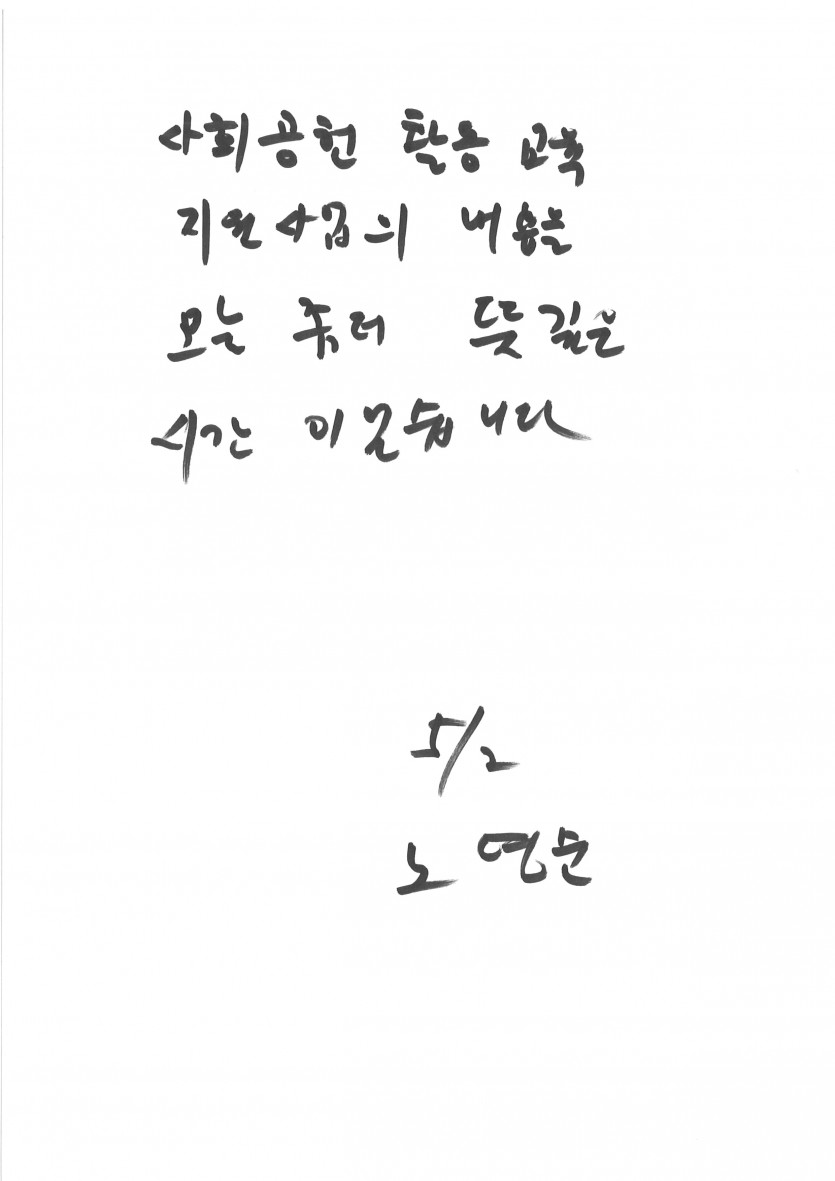 사회공헌 활동 교육
지원사업의 내용을
오늘 부터 뜻깊은
시간 이였습니다
5/2
노 연순